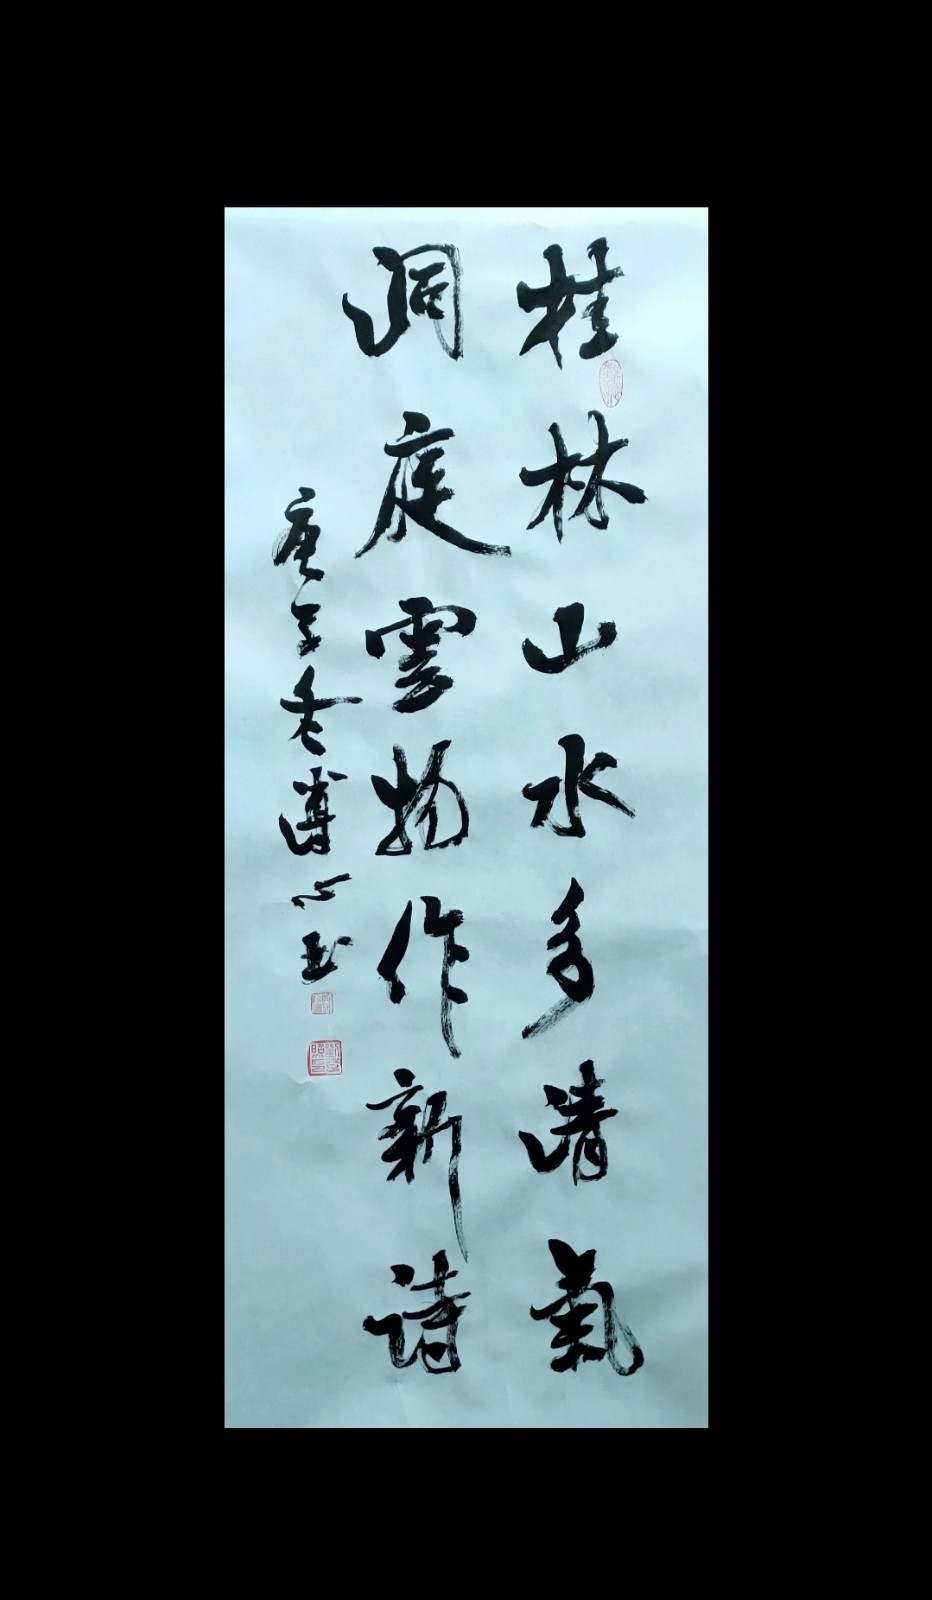 桂林山水多清氣
洞庭雲物作新詩
庚子冬博心玉